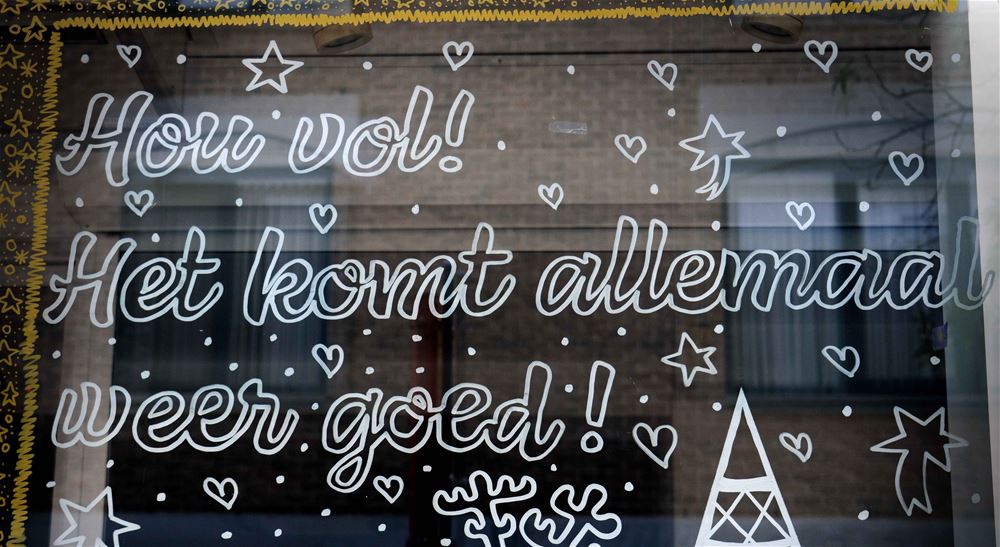 Hou vol!
Het komt allemaal
weer goed!